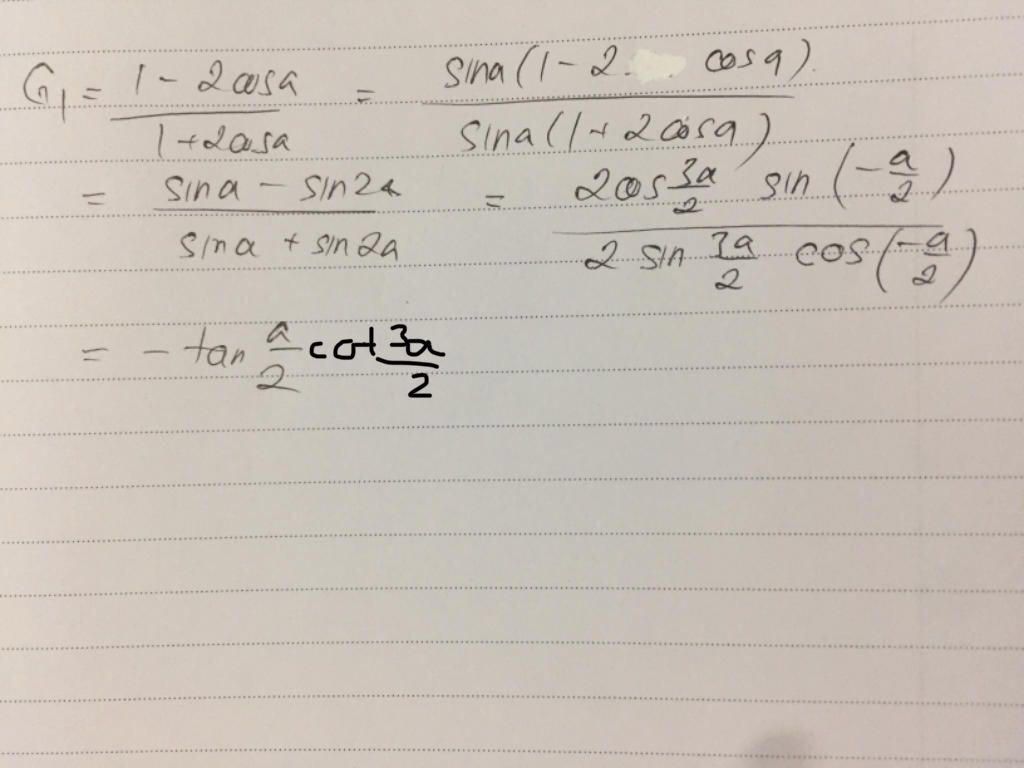 G₁ = (1 - 2cosa)/(1+2cosa) = (sina(1-2. cosa).)/(sina(1+2cosa))
= (sina - sin2a)/(sina + sin2a) = (2cos 3a/2 sin(-a/2))/(2 sin 3a/2 cos(-a/2))
= - tan a/2 cot 3a/2